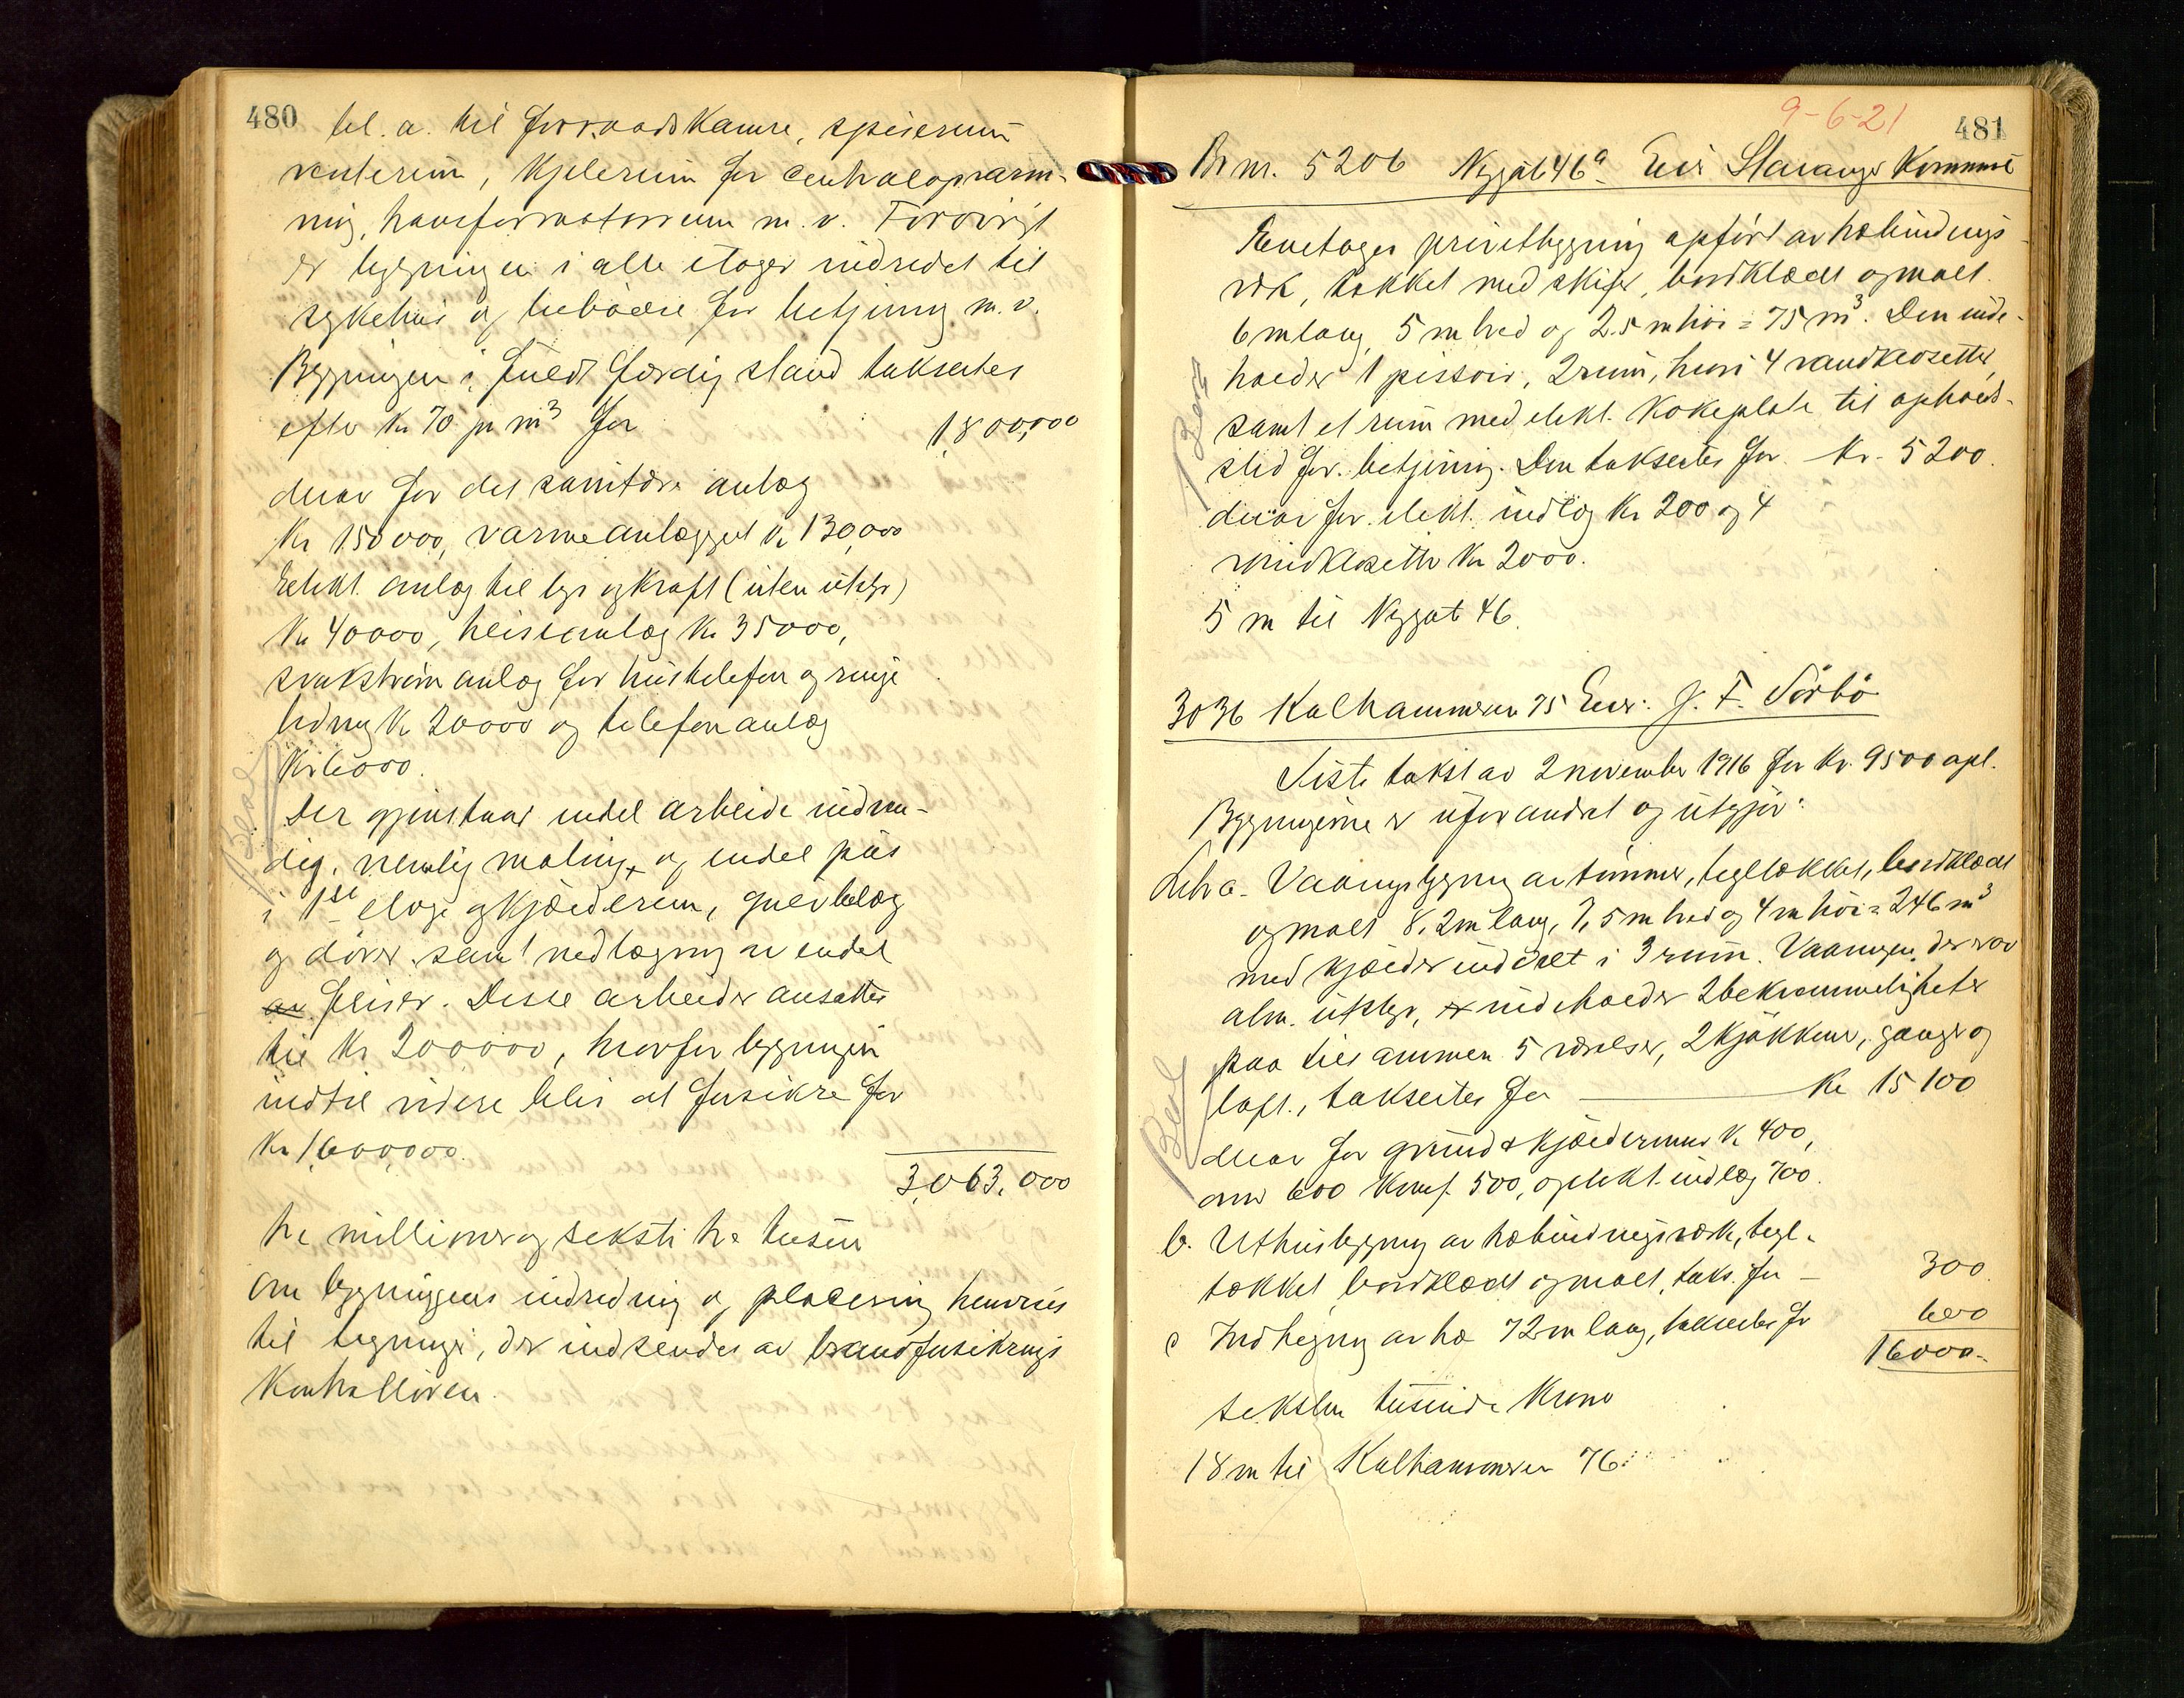 480
bl. a. til forraadskamre, spiserum
venterum, kjelerum for centralopvarm-
ning, transformatorrum m. v. Forøvrigt
er bygningen i alle etager indredet til
sykehus og beboelse for betjening m. v.
Bygningen i fuldt færdig stand takseres
efter Kr 70 pr m³ for 1,800,000
derav for det sanitære anlæg
Kr 150000, varmeanlægget Kr 130,000
Elekt. anlæg til lys og kraft (uten utstyr)
Kr 40000, heiseanlæg Kr 35000,
svakstrøm anlæg for hustelefon og ringe
ledning Kr 20000 og telefonanlæg
Kr 6000.
Der gjenstaar endel arbeide indven-
dig, nemlig maling, og endel puds
i 1ste etage og kjælderrum, gulvbelæg
og dører samt nedlægning av endel
av fliser. Disse arbeider ansættes
til Kr 200000, hvorfor bygningen
indtil videre blir at forsikre for
Kr 1,600,000.
3,063,000
tre millioner og seksti tre tusen
Om bygningens indredning og placering henvises
til tegninger, der indsendes av brandforsikrings
kontrolløren.
9-6-21
481
Br nr. 5206 Nygat 46a Eier Stavanger Kommune
Enetages privetbygning opført av træbindings
verk, tækket med skifer, bordklædt og malt.
6 m lang, 5 m bred og 2.5 m høi = 75 m³. Den inde-
holder 1 pissoir, 2 rum, hvori 4 vandklosetter,
samt et rum med elekt. kokeplate til opholds-
sted for betjening. Den takseres for Kr. 5200.
derav for elekt. indlæg Kr 200 og 4
vandklosetter Kr 2000.
5 m til Nygat 46.
3036 Kalhammeren 75 Eier: J. F. Sørbø
Siste takst av 2 november 1916 for Kr. 9500 opl.
Bygningerne er uforandret og utgjør:
Litra a. Vaaningsbygning av tømmer, tegltækket, bordklædt
og malt 8,2 m lang, 7,5 m bred og 4 m høi = 246 m³
med kjælder inddelt i 3 rum. Vaaningen, der har
alm. utstyr, indeholder 2 bekvemmeligheter
paa tilsammen 5 værelser, 2 kjøkkener, ganger og
loft, takseres for Kr 15100
derav for grund & kjældermur Kr 400,
ovne 600 Komf. 500, og elekt. indlæg 700.
b. Uthusbygning av træbindingsverk, tegl-
tækket, bordklædt og malt, taks. for 300
c Indhegning av træ 72 m lang, takseres for 600
16000.-
seksten tusinde Kroner
18 m til Kalhammeren 76.